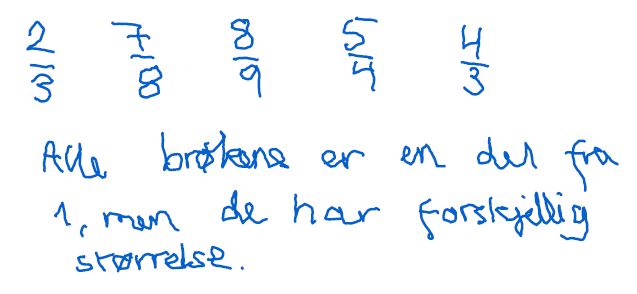 2/3 7/8 8/9 5/4 4/3
Alle brøkene er en del fra
1, men de har forskjellig
størrelse.